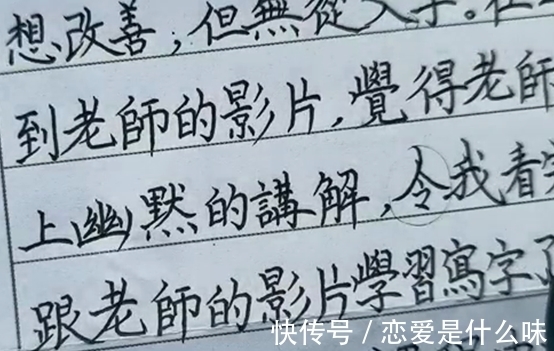 想改善，但無從入手。在
到老師的影片，覺得老師
上幽默的講解，令我看
跟老師的影片學習寫字了
快传号 / 恋爱是什么味